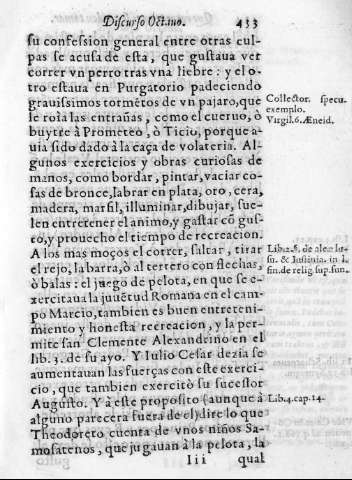 Discurso Octauo. 433
su confession general entre otras cul-
pas se acusa de esta, que gustaua ver
correr vn perro tras vna liebre: y el o-
tro estaua en Purgatorio padeciendo
grauissimos tormẽtos de vn pajaro, que
le roìa las entrañas, como el cueruo, ò
buytre à Prometeo, ò Ticio, porque a-
uia sido dado à la caça de volateria. Al-
gunos exercicios y obras curiosas de
manos, como bordar, pintar, vaciar co-
sas de bronce, labrar en plata, oro, cera,
madera, marfil, illuminar, dibujar, sue-
len entretener el animo, y gastar cõ gus-
to, y prouecho el tiempo de recreacion.
A los mas moços el correr, saltar, tirar
el rejo, la barra, ò al terrero con flechas,
ò balas: el juego de pelota, en que se e-
xercitaua la juuẽtud Romana en el cam-
po Marcio, tambien es buen entreteni-
miento y honesta recreacion, y la per-
mite san Clemente Alexandrino en el
lib. 3. de su ayo. Y Iulio Cesar dezia se
aumentauan las fuerças con este exerci-
cio, que tambien exercitò su sucessor
Augusto. Y à este proposito (aunque à
alguno parecera fuera de el) dire lo que
Theodoreto cuenta de vnos niños Sa-
mosatenos, que jugauan à la pelota, la
Iii qual
Collector. specu.
exemplo.
Virgil. 6. Æneid.
Lib. 2. §. de alea lu-
su. & Iustinia. in l.
fin. de relig. sup. fun.
Lib. 4. cap. 14.